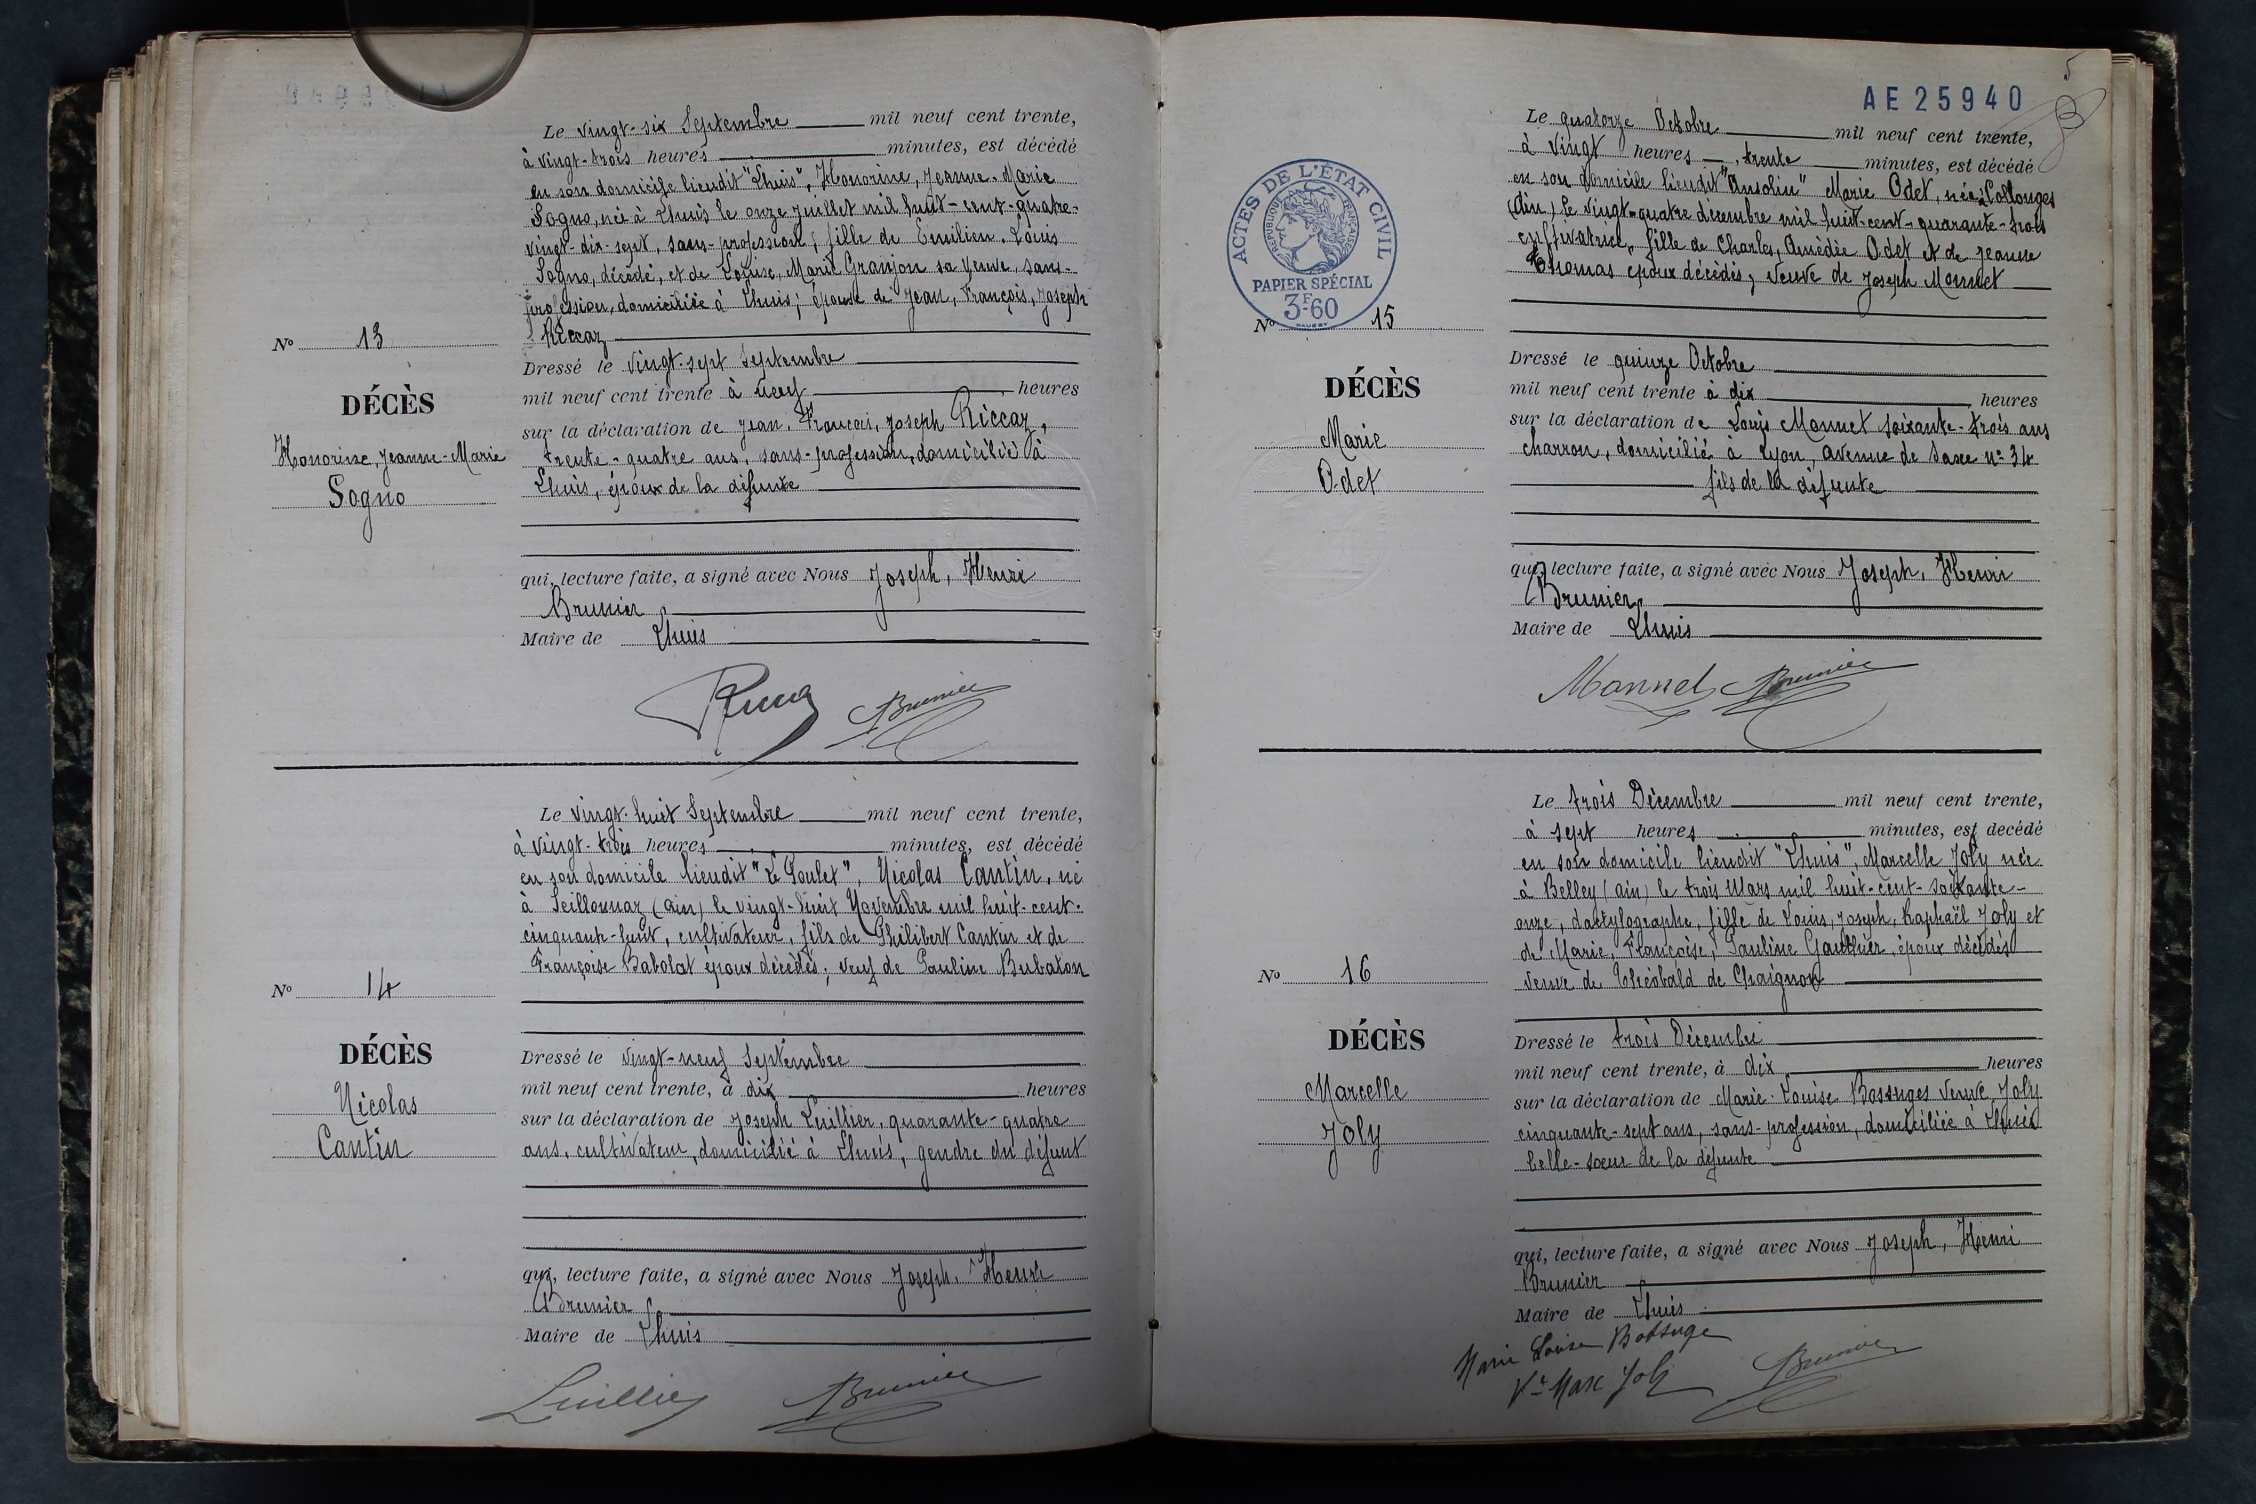 Le vingt-six Septembre mil neuf cent trente,
à vingt-trois heures minutes, est décédé
en son domicile lieudit "Lhuis", Honorine, Jeanne-Marie
Sogno, née à Lhuis le onze juillet mil huit-cent-quatre-
vingt-dix-sept, sans-profession, fille de Emilien, Louis
Sogno, décédé, et de Louise, Marie Granjon sa veuve, sans-
profession, domiciliée à Lhuis; épouse de Jean, François, Joseph
Riccaz
No 13
DÉCÈS
Honorine, Jeanne-Marie
Sogno
Dressé le vingt-sept Septembre
mil neuf cent trente à neuf heures
sur la déclaration de Jean, François, Joseph Riccaz,
trente-quatre ans, sans-profession, domicilié à
Lhuis, époux de la défunte
qui, lecture faite, a signé avec Nous Joseph, Henri
Brunier
Maire de Lhuis
Brunier
Le vingt-huit Septembre mil neuf cent trente,
à vingt-trois heures minutes, est décédé
en son domicile lieudit "Le Poulet", Nicolas Cantin, né
à Seillonnaz (Ain) le vingt-huit Novembre mil huit-cent-
cinquante-huit, cultivateur, fils de Philibert Cantin et de
Françoise Babolat époux décédés; veuf de Pauline Bubaton
No 14
DÉCÈS
Nicolas
Cantin
Dressé le vingt-neuf Septembre
mil neuf cent trente, à dix heures
sur la déclaration de Joseph Luillier, quarante-quatre
ans, cultivateur, domicilié à Lhuis, gendre du défunt
qui, lecture faite, a signé avec Nous Joseph, Henri
Brunier
Maire de Lhuis
Luillier Brunier
5
AE25940
ACTES DE L'ÉTAT CIVIL
RÉPUBLIQUE FRANÇAISE
PAPIER SPÉCIAL
3F-60
Le quatorze Octobre mil neuf cent trente,
à vingt heures trente minutes, est décédé
en son domicile lieudit "Ansolin" Marie Odet, née à Collonges
(Ain) le vingt-quatre décembre mil huit-cent-quarante-trois
cultivatrice, fille de Charles, Amédée Odet et de Jeanne
Thomas époux décédés; veuve de Joseph Monnet
No 15
DÉCÈS
Marie
Odet
Dressé le quinze Octobre
mil neuf cent trente à dix heures
sur la déclaration de Louis Monnet soixante-trois ans
charron, domicilié à Lyon, avenue de Saxe no 34
fils de la défunte
qui, lecture faite, a signé avec Nous Joseph, Henri
Brunier
Maire de Lhuis
Monnet Brunier
Le trois Décembre mil neuf cent trente,
à sept heures minutes, est decédé
en son domicile lieudit "Lhuis", Marcelle Joly née
à Belley (Ain) le trois Mars mil huit-cent-soixante-
onze, dactylographe, fille de Louis, Joseph, Raphaël Joly et
de Marie, Françoise, Pauline Gauthier, époux décédés
veuve de Théobald de Chaignon
No 16
DÉCÈS
Marcelle
Joly
Dressé le trois Décembre
mil neuf cent trente, à dix heures
sur la déclaration de Marie-Louise Bossuges veuve Joly
cinquante-sept ans, sans-profession, domiciliée à Lhuis
belle-sœur de la défunte
qui, lecture faite, a signé avec Nous Joseph, Henri
Brunier
Maire de Lhuis
Marie Louise
Joly Brunier